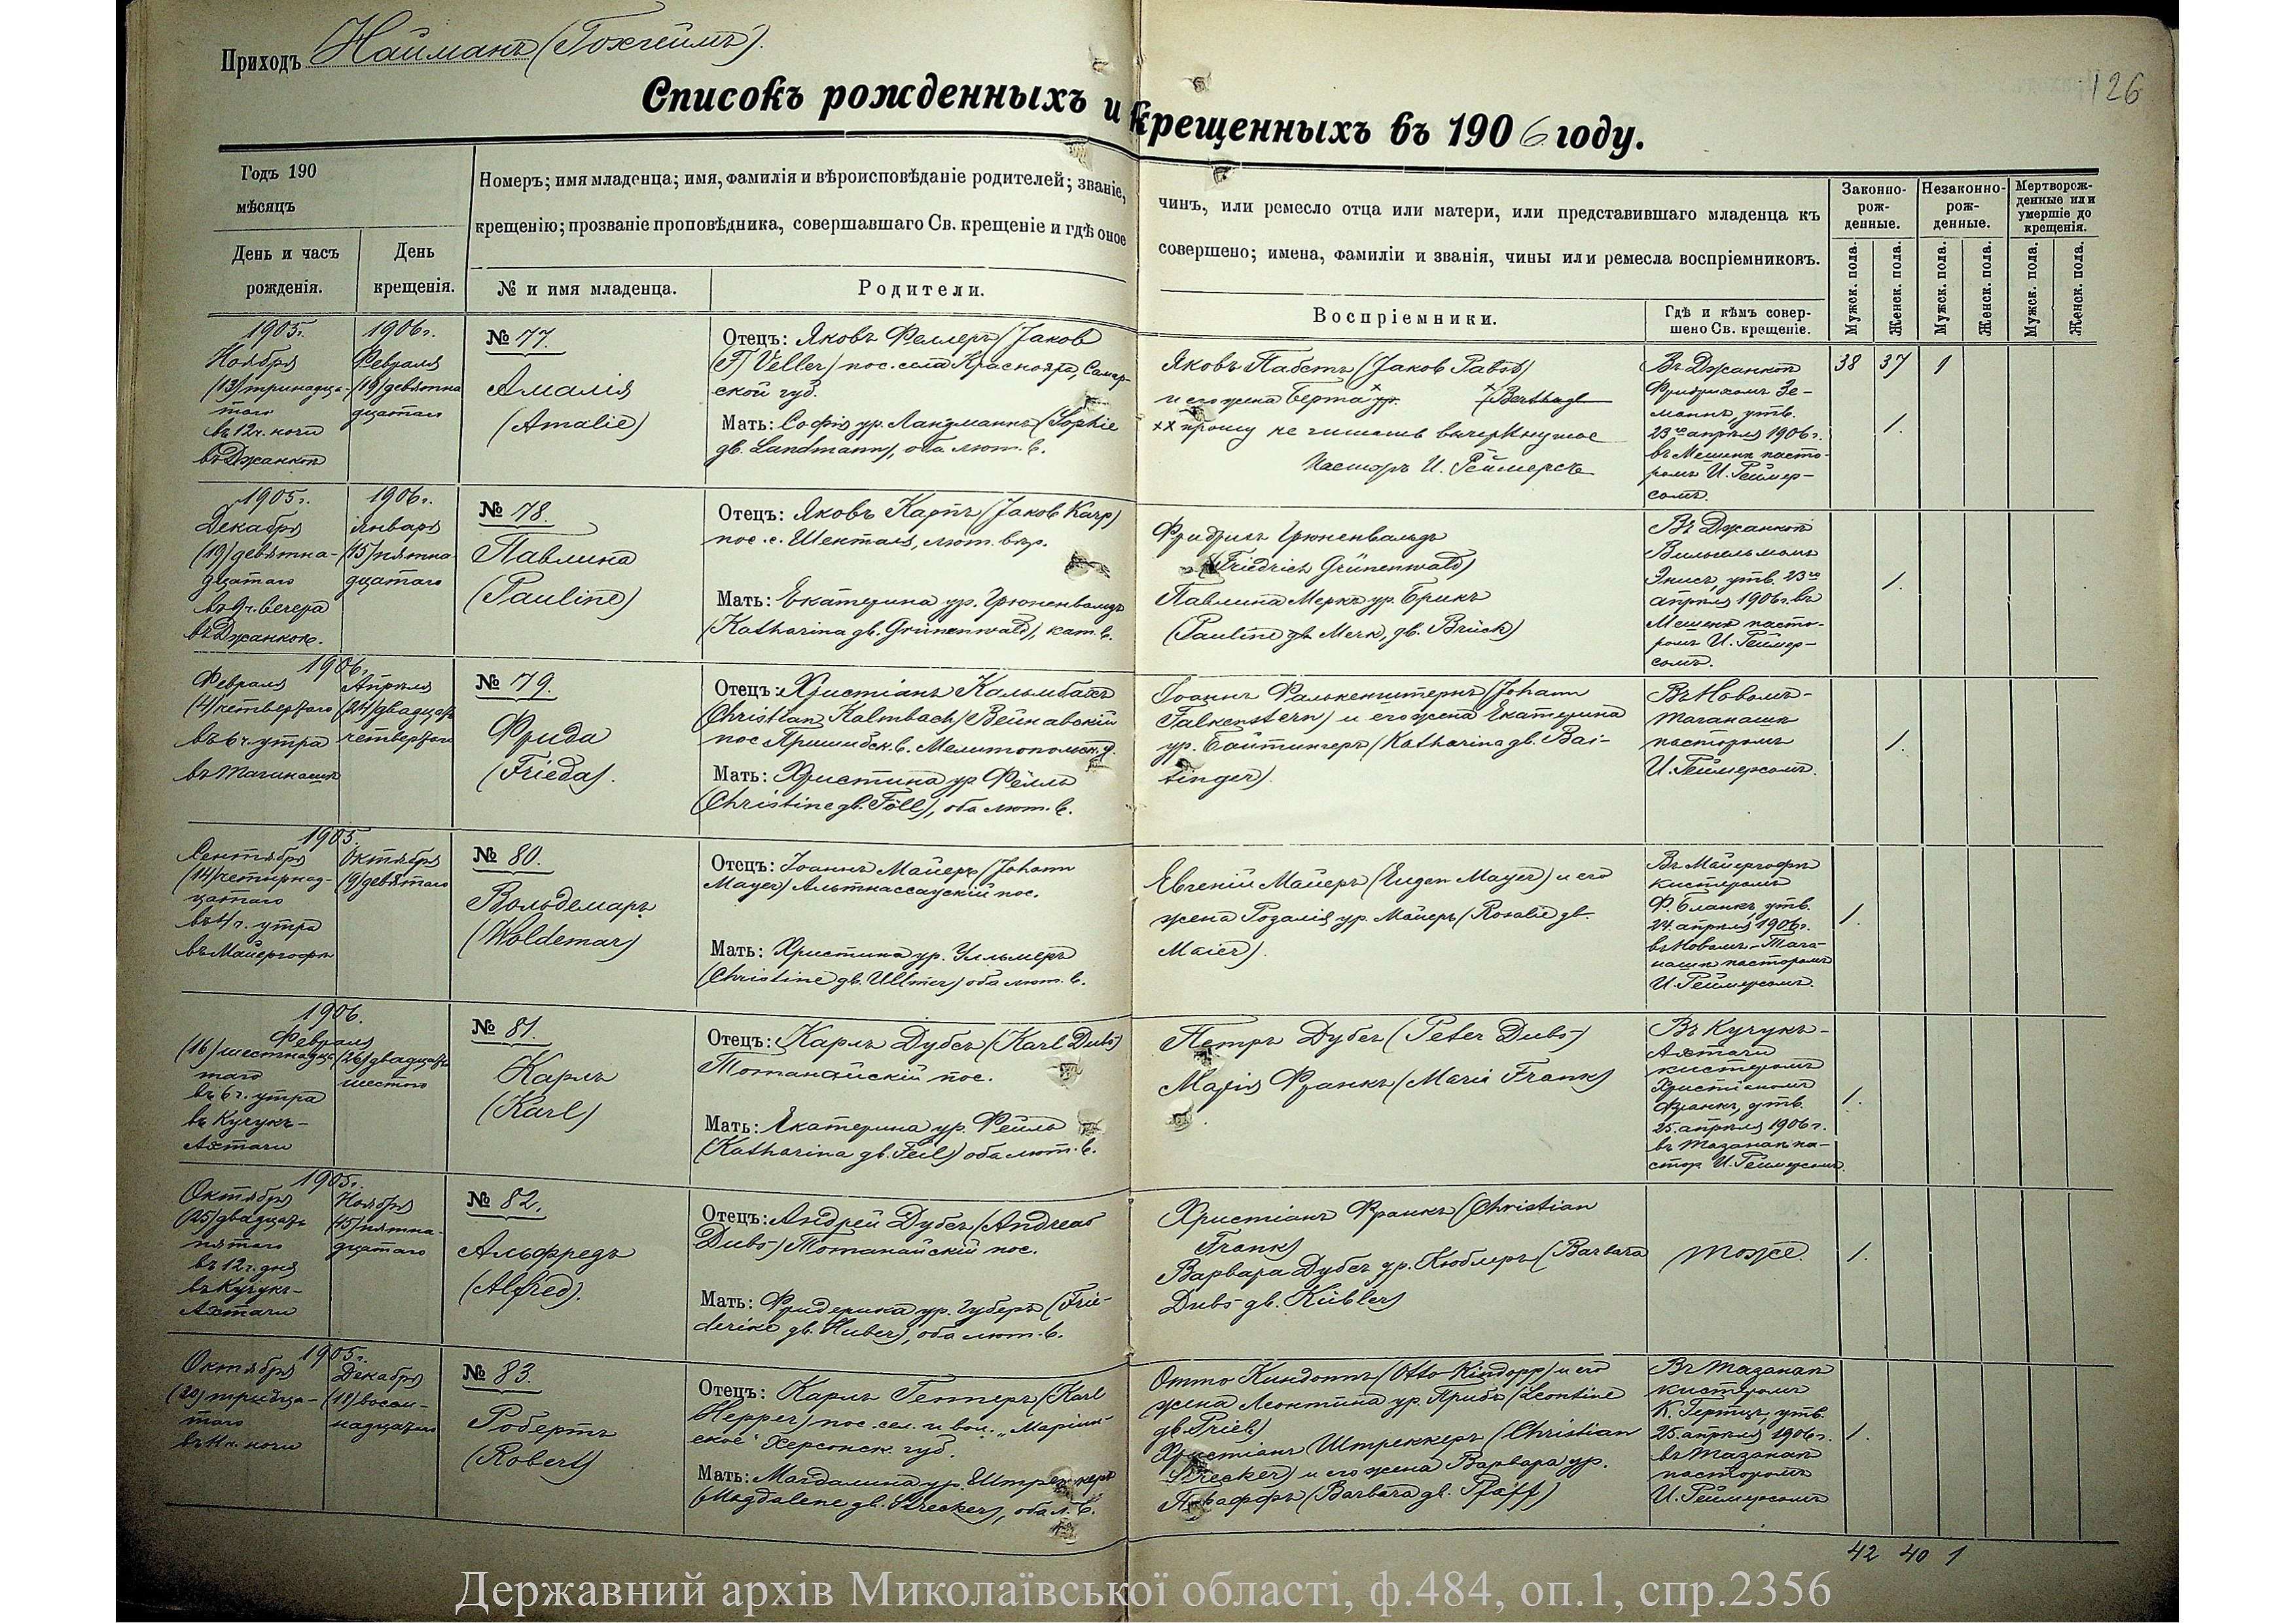 Приходъ Найманъ (Гохгеймъ).
126
Списокъ рожденныхъ и крещенныхъ въ 1906 году.
Годъ 190
мѣсяцъ
День и часъ рожденія.
День крещенія.
Номеръ; имя младенца; имя, фамилія и вѣроисповѣданіе родителей; званіе, чинъ, или ремесло отца или матери, или представившаго младенца къ
крещенію; прозваніе проповѣдника, совершавшаго Св. крещеніе и гдѣ оное совершено; имена, фамиліи и званія, чины или ремесла воспріемниковъ.
№ и имя младенца.
Родители.
Воспріемники.
Гдѣ и кѣмъ совер-
шено Св. крещеніе.
Законно-
рож-
денные.
Незаконно-
рож-
денные.
Мертворож-
денные или
умершіе до
крещенія.
Мужск. пола.
Женск. пола.
Мужск. пола.
Женск. пола.
Мужск. пола.
Женск. пола.
1905г.
Ноября
(13) тринадца-
таго
въ 12ч. ночи
въ Джанкоѣ
1906г.
Февраля
(19) девятна
дцатаго
№ 77.
Амалія
(Amalie)
Отецъ: Яковъ Феллеръ (Jakob
Veller) пос. села Краснояра, Самар-
ской губ.
Мать: Софія ур. Ландманнъ (Sophie
gb. Landmann), оба лют. в.
Яковъ Пабстъ (Jakob Pabst)
и его жена Берта ур. (Bertha gb
xx прошу не читать вычеркнутое
Пасторъ И. Реймерсъ
Въ Джанкоѣ
Фридрихомъ Зе-
манъ, утв.
23го апрѣля 1906г.
въ Мешени пасто-
ромъ И. Реймер-
сомъ.
38 37 1
1.
1905г.
Декабря
(19) девятна-
дцатаго
въ 9ч. вечера
въ Джанкоѣ.
1906г.
января
(15) пятна
дцатаго
№ 78.
Павлина
(Pauline)
Отецъ: Яковъ Карпъ (Jakob Karp)
пос. с. Шенталь, лют. вѣр.
Мать: Екатерина ур. Грюненвальдъ
(Katharina gb. Grünenwald), кат. в.
Фридрихъ Грюненвальдъ
(Friedrich Grünenwald)
Павлина Меркъ ур. Брикъ
(Pauline Merk, gb. Brück)
Въ Джанкоѣ
Вильгельмомъ
утв. 23го
апрѣля 1906г. въ
Мешени пасто-
ромъ И. Реймер-
сомъ.
1.
1906г.
Февраля
(4) четвертаго
въ 6ч. утра
въ Таганашѣ
Апрѣля
(24) двадцать
четвертаго
№ 79.
Фрида
(Frieda).
Отецъ: Христіанъ Кальмбахъ
(Christian Kalmbach) Вейнавскій
пос. Пришибск. в. Мелитопольск. у.
Мать: Христина ур. Фёлль
(Christine gb. Föll), оба лют. в.
Іоаннъ Фалькенштернъ (Johann
Falkenstern) и его жена Екатерина
ур. Байтингеръ (Katharina gb. Bai-
tinger).
Въ Новомъ-
Таганашѣ
пасторомъ
И. Реймерсомъ.
1.
1905.
Сентября
(14) четырнад-
цатаго
въ 4ч. утра
въ Майергофѣ
Октября
(9) девятаго
№ 80.
Вольдемаръ
(Woldemar)
Отецъ: Іоаннъ Майеръ (Johann
Mayer) Альтнассаускій пос.
Мать: Христина ур. Улльмеръ
(Christine gb. Ullmer) оба лют. в.
Евгеній Майеръ (Eugen Mayer) и его
жена Розалія ур. Майеръ (Rosalie gb.
Maier).
Въ Майергофѣ
кистеромъ
Ф. Бланкъ, утв.
24. апрѣля 1906г.
въ Новомъ-Тага-
нашѣ пасторомъ
И. Реймерсомъ.
1.
1906.
Февраля
(16) шестнадца
таго
въ 6ч. утра
въ Кучукъ-
Ахтачи
(26) двадцать
шестого
№ 81.
Карлъ
(Karl)
Отецъ: Карлъ Дубсъ (Karl Dubs)
Тотанайскій пос.
Мать: Екатерина ур. Фейль
(Katharina gb. Feil) оба лют. в.
Петръ Дубсъ (Peter Dubs)
Марія Франкъ (Maria Frank)
Въ Кучукъ-
Ахтачи
кистеромъ
Христіаномъ
Франкъ, утв.
25. апрѣля 1906г.
въ Тазанакѣ па-
стор. И. Реймерсомъ.
1.
1905г.
Октября
(25) двадцать
пятаго
въ 12ч. дня
въ Кучукъ-
Ахтачи
Ноября
(15) пятна-
дцатаго
№ 82.
Альфредъ
(Alfred).
Отецъ: Андрей Дубсъ (Andreas
Dubs) Тотанайскій пос.
Мать: Фридерика ур. Губеръ (Frie-
derike gb. Huber), оба лют. в.
Христіанъ Франкъ (Christian
Frank)
Варвара Дубсъ ур. Кюблеръ (Barbara
Dubs gb. Kübler)
Тоже.
1.
1905г.
Октября
(30) тридца-
таго
въ 11ч. ночи
Декабря
(18) восем-
надцатаго
№ 83.
Робертъ
(Robert)
Отецъ: Карлъ Гепперъ (Karl
Hepper) пос. сел. и вол. „Маріин-
ское" Херсонск. губ.
Мать: Магдалина ур. Штреккеръ
(Magdalene gb. Strecker), оба л. в.
Отто Киндоппъ (Otto Kindopp) и его
жена Леонтина ур. Прибъ (Leontine
gb. Prieb)
Христіанъ Штреккеръ (Christian
Strecker) и его жена Варвара ур.
Пфаффъ (Barbara gb. Pfaff)
Въ Тазанакѣ
кистеромъ
К. Гертцъ, утв.
25. апрѣля 1906г.
въ Тазанакѣ
пасторомъ
И. Реймерсомъ
1.
42 40 1
Державний архів Миколаївської області, ф.484, оп.1, спр.2356